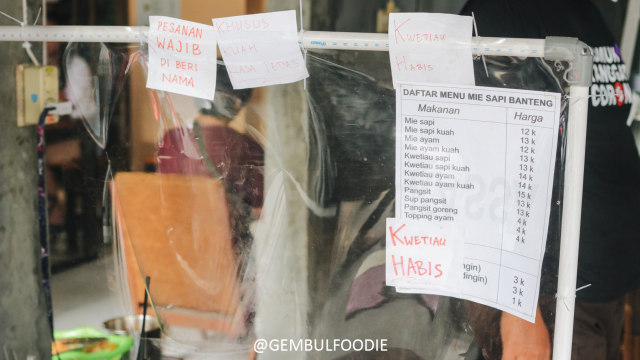 PESANAN
WAJIB
DI BERI
NAMA
KHUSUS
KUAH
KWETIAU
HABIS
DAFTAR MENU MIE SAPI BANTENG
Makanan Harga
Mie sapi 12 k
Mie sapi kuah 13 k
Mie ayam 12 k
Mie ayam kuah 13 k
Kwetiau sapi 13 k
Kwetiau sapi kuah 14 k
Kwetiau ayam 14 k
Kwetiau ayam kuah 15 k
Pangsit 13 k
Sup pangsit 13 k
Pangsit goreng 4 k
Topping ayam 4 k
4 k
KWETIAU
HABIS
ngin) 3 k
dingin) 3 k
1 k
@GEMBULFOODIE